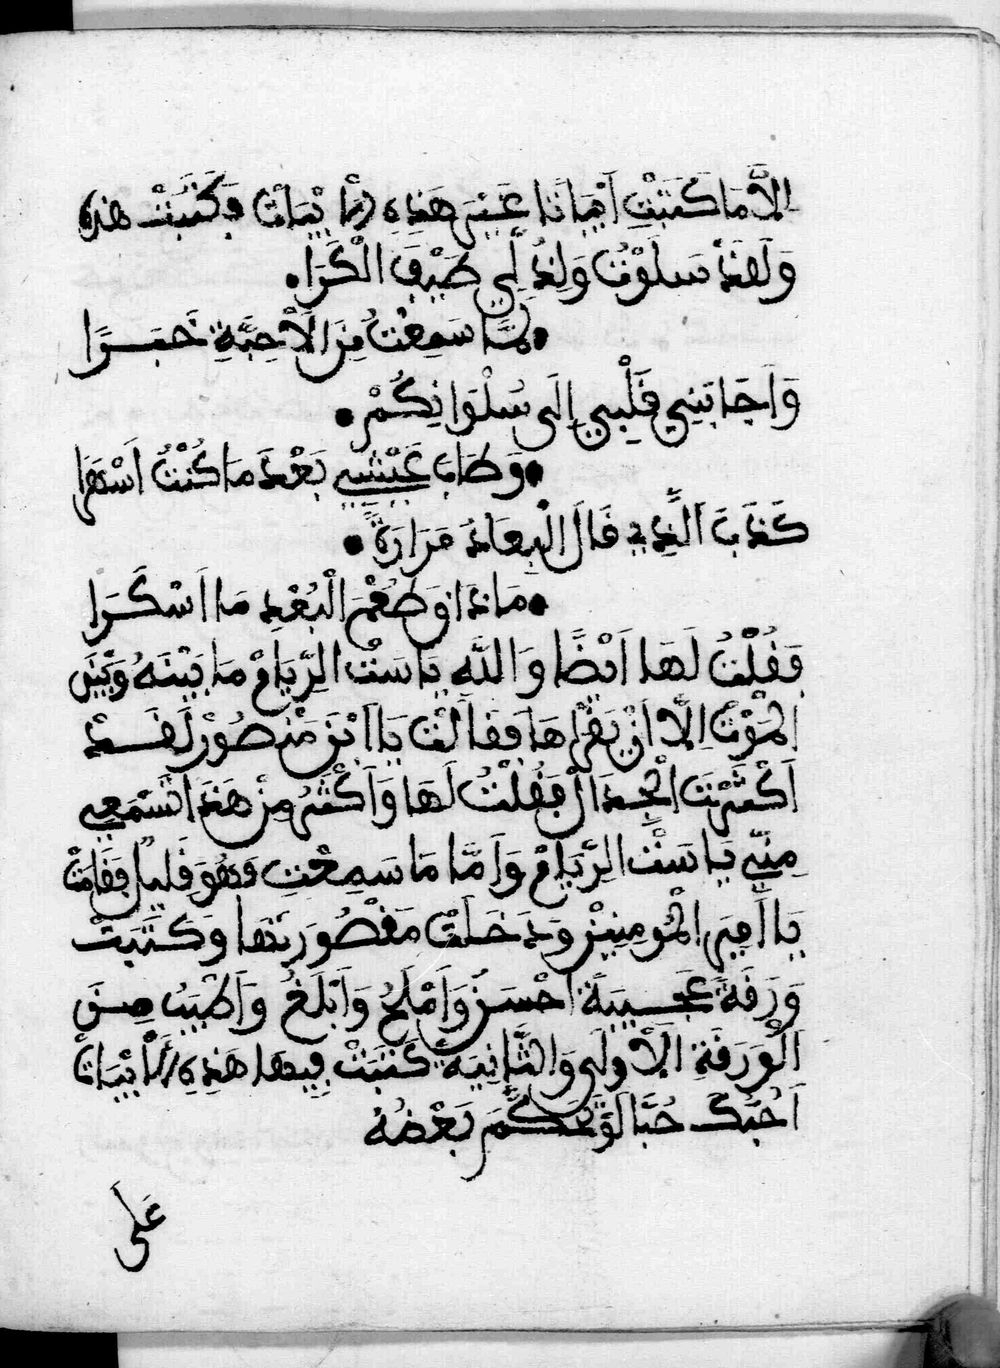 اِلَّا مَا كَتَبْتِ اَبْيَاتًا غَيْرَ هَذِهِ الْاَبْيَاتْ فَكَتَبَتْ هذه
وَلَقَدْ سَلَوْتُ وَلَذَّ لِي طَيْفَ الْكَرَا•
•لَمَّا سَمِعْتُ مِنَ الْاَحِبَّةِ خَبَرًا
وَاَجَابَنِي قَلْبِي اِلَى سُلْوَانِكُمْ•
•وَطَابَ عَيْشِي بَعْدَ مَا كُنْتُ اَسْهَرَا
كَذَبَ الَّذِي قَالَ الْبِعَادُ مَرَارَةً•
•مَاذَا وَطَعْمَ الْبُعْدِ مَا اَسْكَرَا
فَقُلْتُ لَهَا اَيْضًا وَاللَّهِ يَا سَتْ الرِّيَامْ مَا بَيْنَهُ وَبَيْنَ
الْمَوْتْ اِلَّا اَنْ يَقْرَاهَا فَقَالَتْ يَا اَبْنَ مَنْصُورْ لَقَدْ
اَكْثَرْتَ الْجِدَالْ فَقُلْتُ لَهَا وَاَكْثَرُ مِنْ هَذَا تَسْمَعِي
مِنِّي يَا سَتْ الرِّيَامْ وَاَمَّا مَا سَمِعْتِ فَهُوَ قَلِيلْ فَقَامَتْ
يَا اَمِيرَ الْمُومِنِينْ وَدَخَلَتْ مَقْصُورَتَهَا وَكَتَبَتْ
وَرَقَةً عَجِيبَةً اَحْسَنْ وَاَمْلَحُ وَاَبْلَغُ وَاَطْيَبُ مِنَ
الْوَرَقَةِ الْاُولَى وَالثَّانِيَةْ كَتَبَتْ فِيهَا هَذِهِ الْاَبْيَاتْ
اُحِبُّكَ حُبًّا لَوْ تَحَكَّمَ بَعْضُهُ
عَلَى